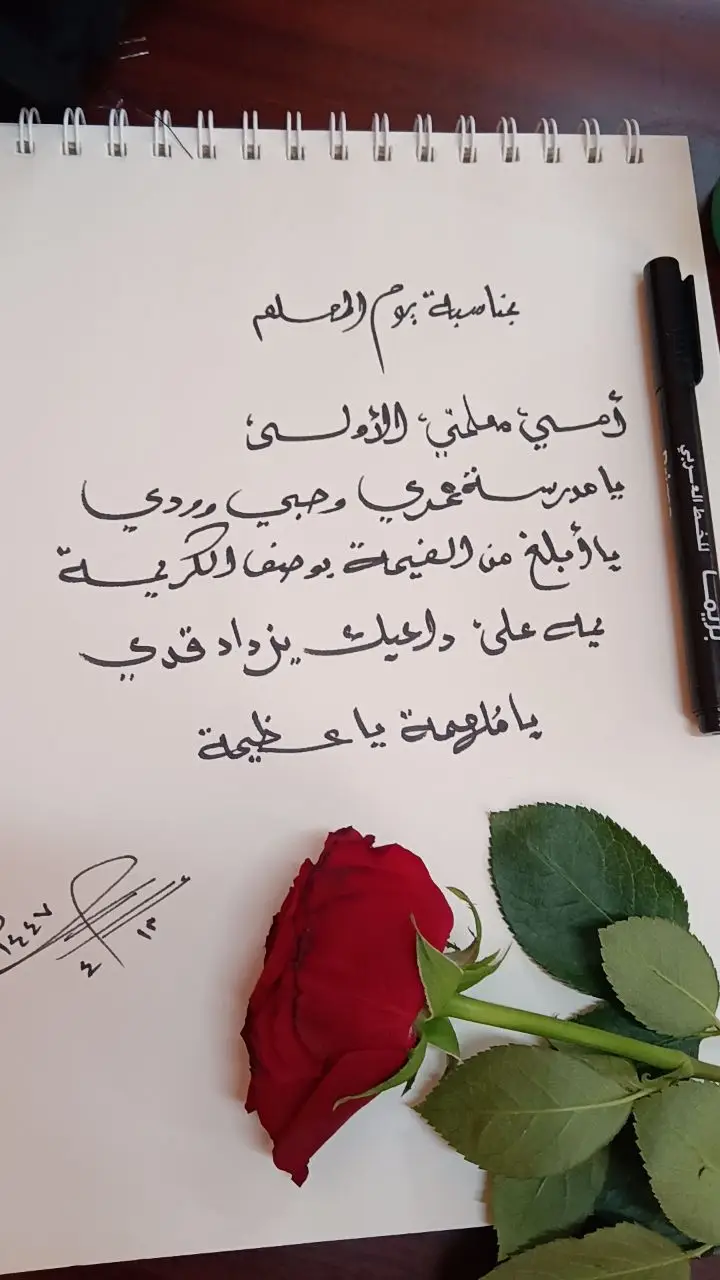 بمناسبة يوم المعلم
أمي معلمتي الأولى
يا مدرسة مجدي وحبي وودي
يا أبلغ من القيمة بوصف الكريمة
يمه على داعيك يزداد قدي
يا مُلهمة يا عظيمة
١٤٤٧
٤
١٣
للخط العربي
بريما